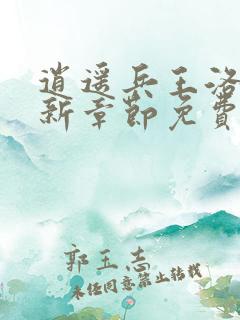 逍遥兵王洛
新章節免費
郭玉志
未经同意禁止转载